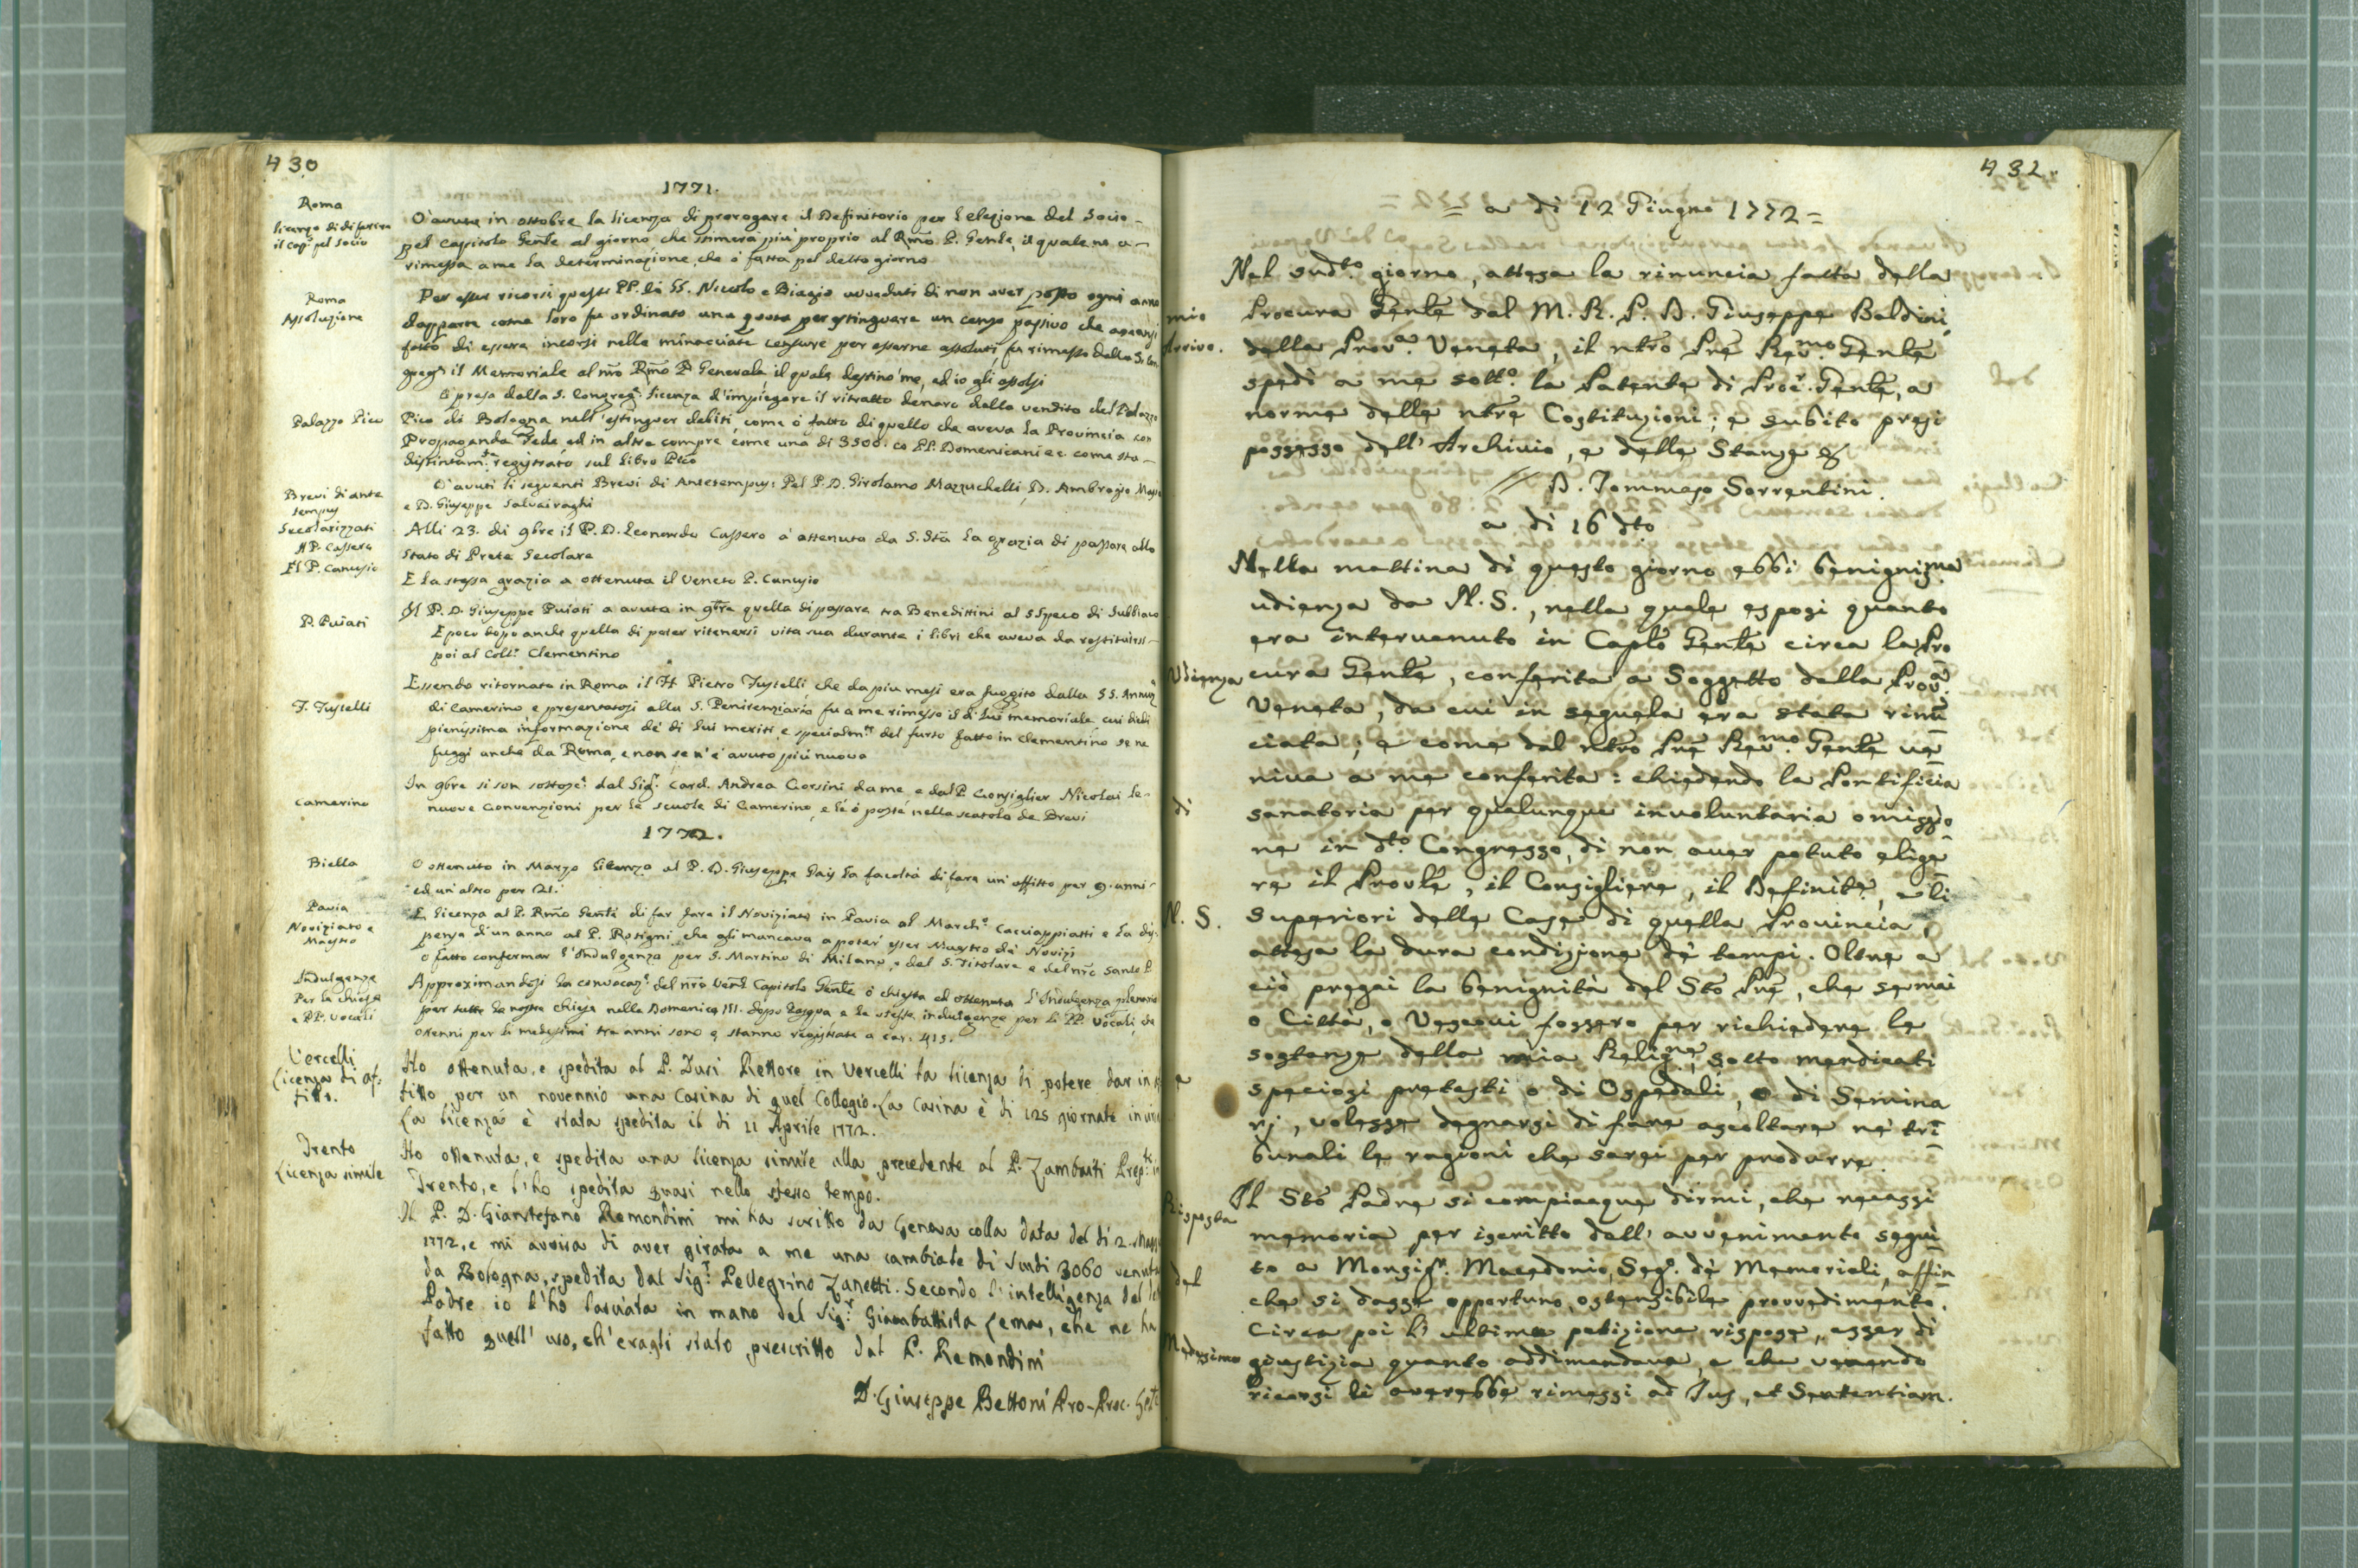 430
1771.
Roma
licenza di differire
il cap.º pel socio
O' avuta in ottobre la licenza di prorogare il Definitorio per l'elezione del Socio
pel Capitolo Genle al giorno, che stimerà più proprio al Rmo P. Genle, il quale ne a-
rimessa a me la determinazione, che ó fatta pel detto giorno
Roma
Assoluzione
Per esser ricorsi questi PP. di SS. Nicolo e Biagio avveduti di non aver posto ogni anno
dapparte come loro fu ordinato una quota per estinguere un censo passivo che
fatto di essere incorsi nelle minacciate censure per esserne assoluti, fu rimesso dalla S. Con
greg.e il Memoriale al nro Rmo P. Generale il quale destinò me, ed io gli assolsi
Palazzo Pico
O' presa dalla S. Congreg.e licenza d'impiegare il ritratto denaro dalla vendita del Palazzo
Pico di Bologna nell'estinguer debiti, come ó fatto di quello che aveva la Provincia con
Propaganda Fede ed in altre compre come una di 3500. co PP. Domenicani ec. come sta
distintam.te registrato sul libro Pico
Brevi di ante
tempus
O' avuti li seguenti Brevi di Antetempus: Pel P. D. Girolamo Mazzuchelli D. Ambrogio
e D. Giuseppe Salvairaghi
Secolarizzati
Il P. Cassero
Alli 23. di 9bre il P. D. Leonardo Cassero à ottenuto da S. Stà la grazia di passare allo
Stato di Prete Secolare
Il P. Canusio
E la stessa grazia a ottenuta il Veneto P. Canusio
P. Puiati
Il P. D. Giuseppe Puiati a avuta in 9bre quella di passare tra Benedittini al SSpeco di Subbiaco
E poco dopo anche quella di poter ritenersi vita sua durante i libri che aveva da restituirsi
poi al Coll.o Clementino
F. Tuscelli
Essendo ritornato in Roma il F. Pietro Tuscelli, che da più mesi era fuggito dalla SS. Annunz
di Camerino e presentatosi alla S. Penitenziaria fu a me rimesso il di lui memoriale cui diedi
pienissima informazione de' di lui meriti, e specialm.te del furto fatto in Clementino se ne
fuggì anche da Roma, e non se n'è avuto più nuova
Camerino
In 9bre si son sottosc.e dal Sig.r Card. Andrea Corsini da me e dal P. Consiglier Nicolai le
nuove Convenzioni per le scuole di Camerino, e le ó poste nella scatola de Brevi
1772.
Biella
O ottenuto in Marzo licenza al P. D. Giuseppe Gais la facoltà di fare un'affitto per 9. anni
ed un'altro per 21.
Pavia
Noviziato e
Maestro
E licenza al P. Rmo Genle di far fare il Noviziato in Pavia al March.e Cacciappiatti e la dis-
pensa di un anno al P. Rosigni, che gli mancava a poter esser Maestro de' Novizj
O fatto confermar l'Indulgenza per S. Martino di Milano, e del S. Titolare e del nro Santo P.
Indulgenze
Per la chiesa
e PP. Vocali
Approximandosi la convocaz.e del nro Ven.l Capitolo Genle ó chiesta ed ottenuta l'Indulgenza plenaria
per tutte le nostre chiese nella Domenica III. dopo Pasqua e le stesse indulgenze per li PP. Vocali, che
ottenni per li medesimi tre anni sono e stanno registrate a car. 415.
Vercelli
Licenza di af-
fitto.
Ho ottenuta, e spedita al P. Duri Rettore in Vercelli la licenza di potere dar in af
fitto per un novennio una Casina di quel Collegio. La Casina è di 125 giornate in
La licenza è stata spedita il di 11 Aprile 1772.
Trento
Licenza simile
Ho ottenuta, e spedita una licenza simile alla precedente al P. Zambaiti Prep.to in
Trento, e l'ho spedita quasi nello stesso tempo.
Il P. D. Gianstefano Remondini mi ha scritto da Genova colla data del di 2. Magg
1772, e mi avvisa di aver girata a me una cambiale di Scudi 3060 venuta
da Bologna, spedita dal Sig.r Pellegrino Zanetti. Secondo l'intelligenza del
Padre io l'ho lasciata in mano del Sig.r Giambattista Cema, che ne ha
fatto quell' uso, ch'eragli stato prescritto dal P. Remondini
D. Giuseppe Bettoni Pro-Proc. Gnle
432.
= a di 12 Giugno 1772 =
mio
Arrivo.
Nel sudto. giorno, attesa la rinuncia fatta della
Procura Genle dal M. R. P. D. Giuseppe Baldini
della Prov.a Veneta, il ntro Pre Rev.mo Genle
spedì a me sott.o la Patente di Proc.r Genle, a
norma delle ntre Costituzioni; e subito presi
possesso dell' Archivio, e delle Stanze &
D. Tommaso Sorrentini.
a di 16 dto.
Nella mattina di questo giorno ebbi benignis.ma
udienza da N. S., nella quale esposi quanto
era intervenuto in Caplo Genle circa la Pro
Udienza
cura Genle, conferita a Soggetto della Prov.a
Veneta, da cui in seguela era stata rinū
ciata; e come dal ntro Pre Rev.mo Genle ve
niva a me conferita: chiedendo la Pontificia
di
sanatoria per qualunque involuntaria omissio
ne in dto. Congresso, di non aver potuto elige
re il Provle, il Consigliere, il Definite, e li
N. S.
Superiori delle Case di quella Provincia,
attesa la dura condizione de' tempi. Oltre a
ciò pregai la benignità del Sto Pre, che se mai
o Città, o Vescovi fossero per richiedere le
sostanze della mia Relig.ne, sotto mendicati
speciosi pretesti o di Ospedali, o di Semina
rj, volesse degnarsi di fare ascoltare ne' tri
bunali le ragioni che sarei per produrre.
Risposta
Il Sto Padre si compiacque dirmi, che recassi
memoria per iscritto dell' avvenimento segui
to a Monsigr. Macedonio, Seg.o de' Memoriali, affin
del
che si dasse opportuno, ostensibile provvedimento.
Circa poi l' ultima petizione rispose, esser di
Medesimo
giustizia quanto addimandava, e che venendo
ricorsi li averebbe rimessi ad Jus, et Sententiam.